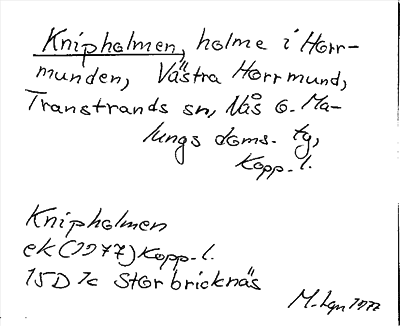 Knipholmen, holme i Horr-
munden, Västra Horrmund,
Transtrands sn, Nås o. Ma-
lungs doms. tg,
Kopp. l.
Knipholmen
ek (1977) Kopp. l.
15D 7c Storbricknäs
M. Lgn 1977